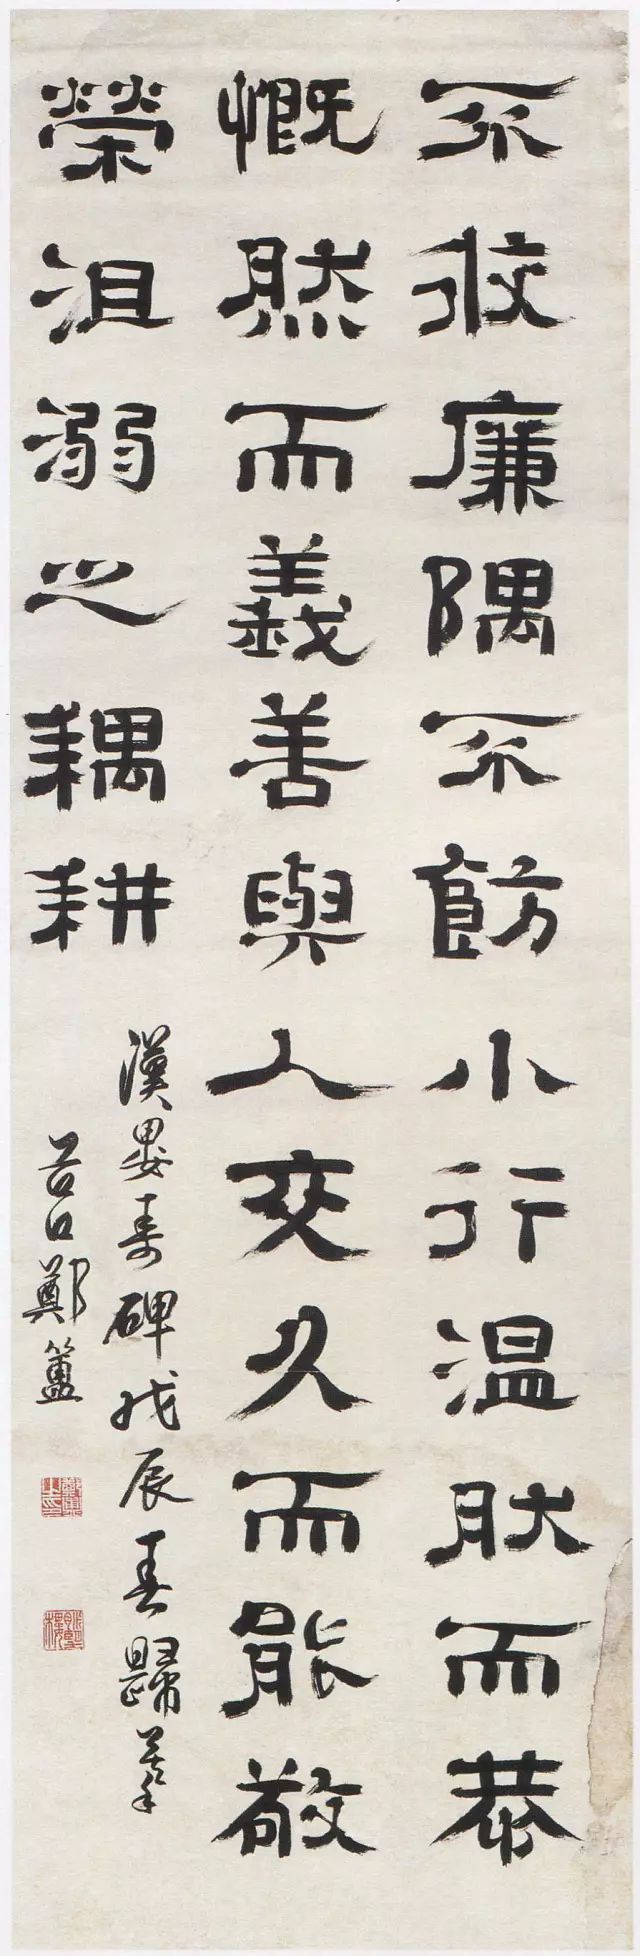 不攸廉隅不飭小行温肰而恭
慨然而義善與人交久而能敬
榮沮溺之耦耕
漢婁壽碑戊辰春歸
谷口鄭簠
鄭簠之印